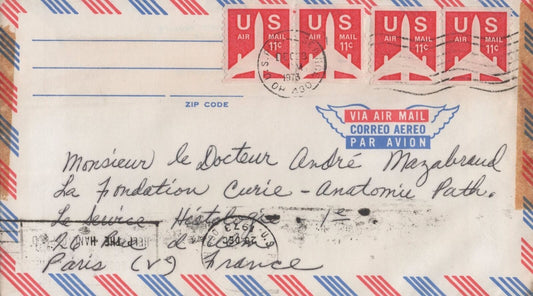 US AIR MAIL 11¢
US AIR MAIL 11¢
US AIR MAIL 11¢
US AIR MAIL 11¢
DEC
1973
OH 430
ZIP CODE
VIA AIR MAIL
CORREO AEREO
PAR AVION
Monsieur le Docteur André Mazabraud
La Fondation Curie - Anatomie Path.
Le Service Histologie. 1er.
26 d'Ulm
Paris (Ve) France
HELP THE HAN
1973
U.S.